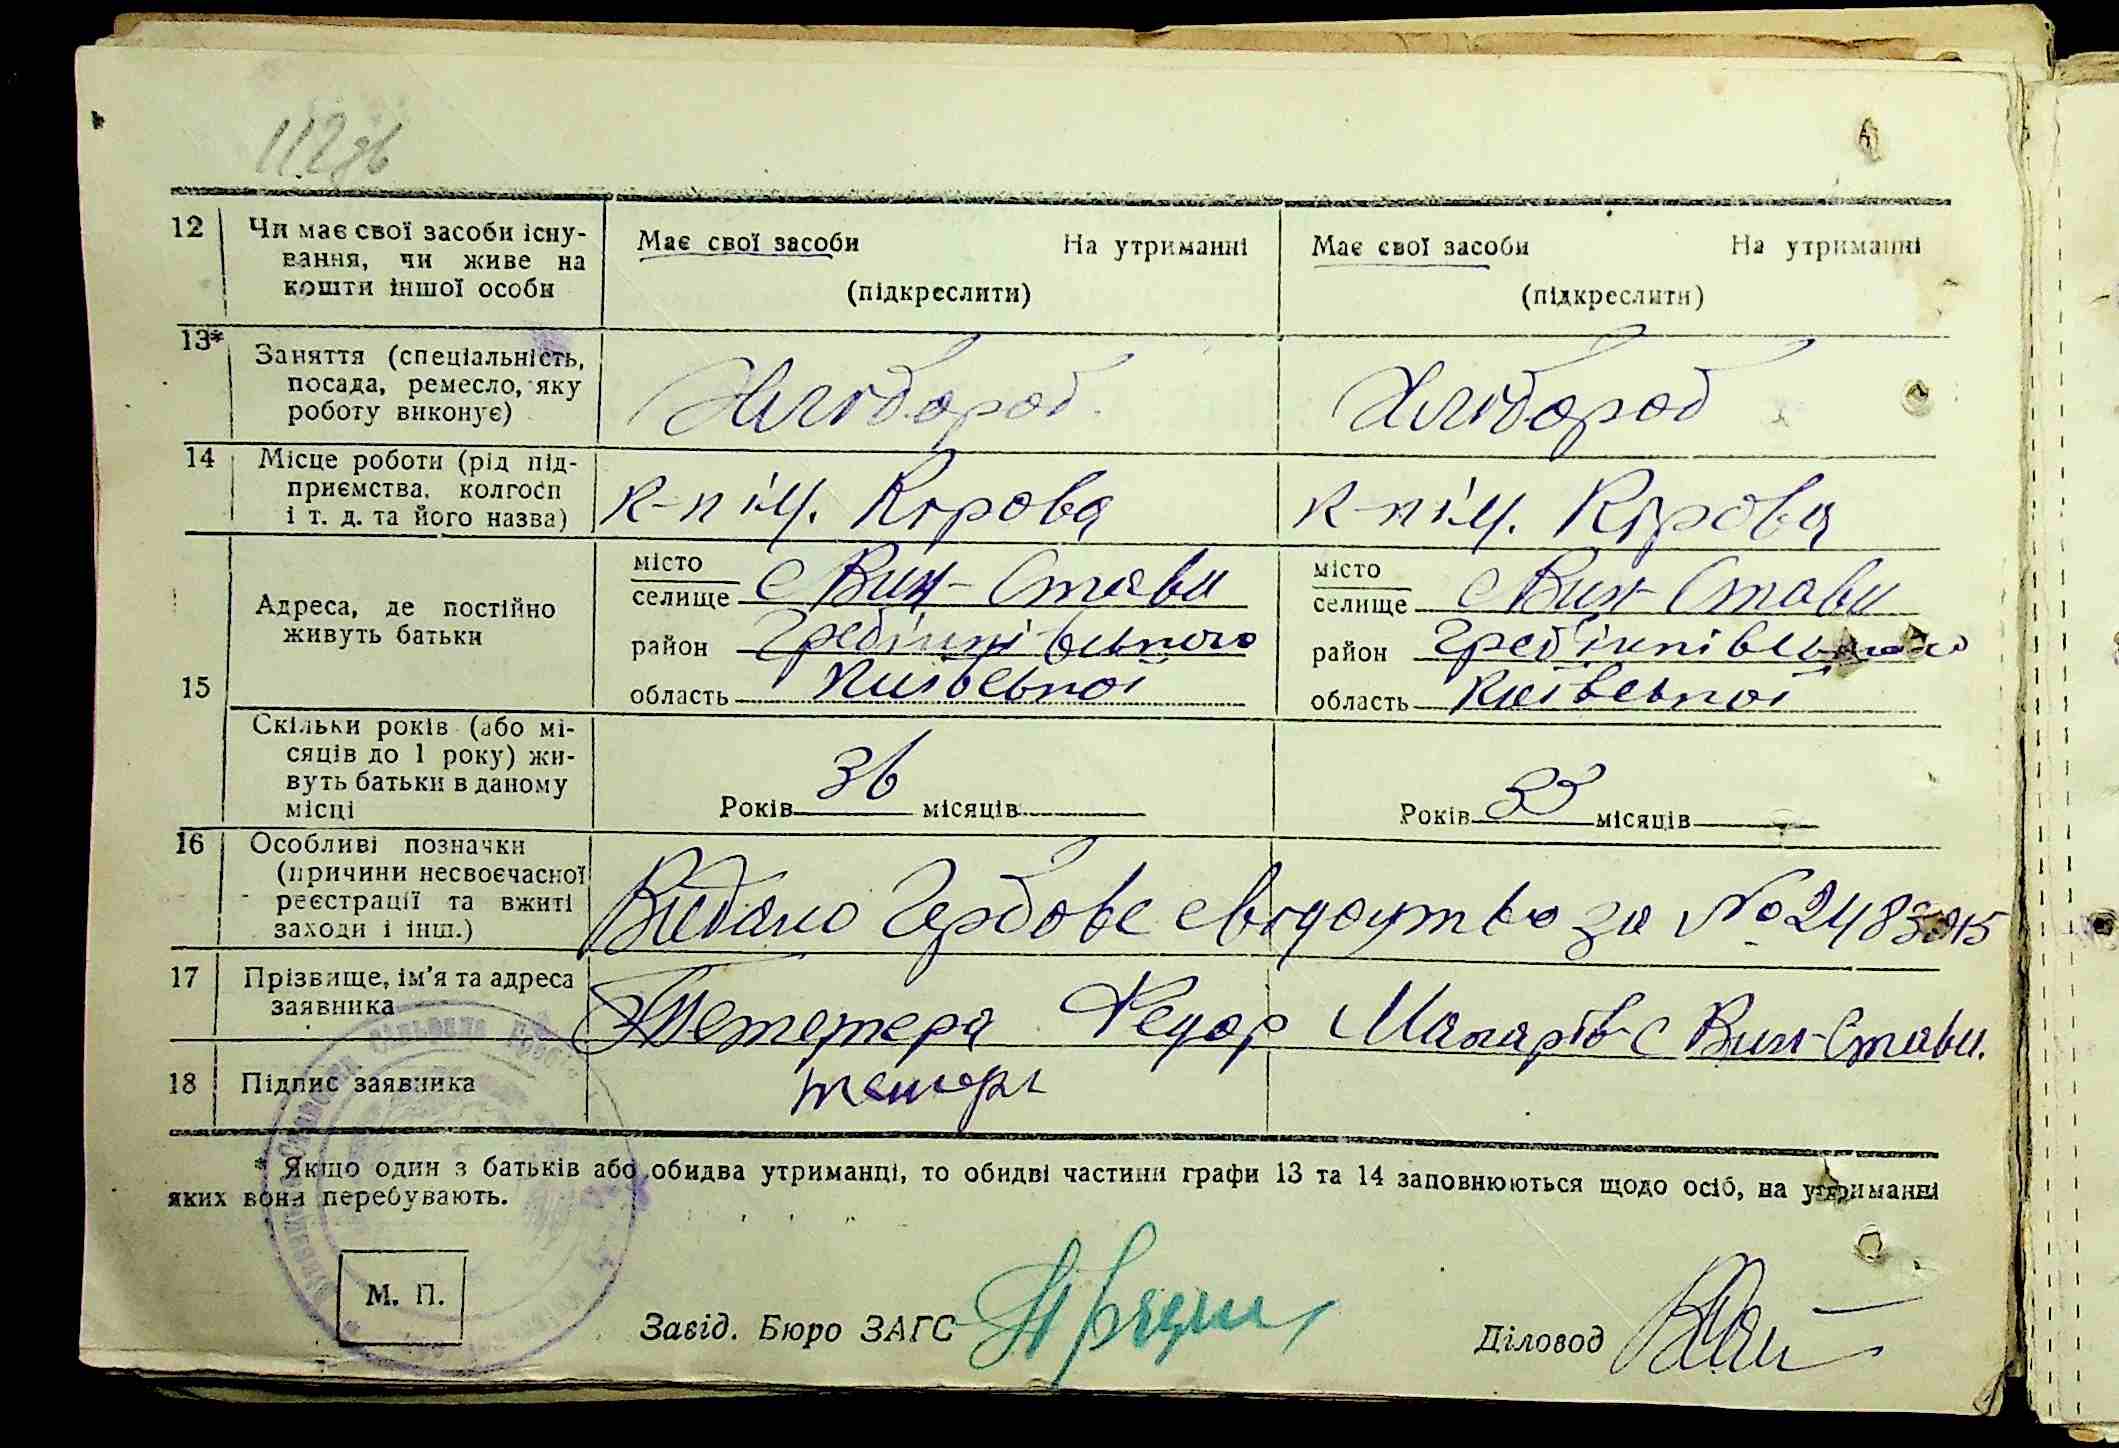 112зв
12 Чи має свої засоби існу-
вання, чи живе на
кошти іншої особи
Має свої засоби На утриманні
(підкреслити)
Має свої засоби На утриманні
(підкреслити)
13* Заняття (спеціальність,
посада, ремесло, яку
роботу виконує)
Хлібороб
Хлібороб
14 Місце роботи (рід під-
приємства, колгосп
і т. д. та його назва)
к-п ім. Кірова
к-п ім. Кірова
15 Адреса, де постійно
живуть батьки
місто
селище с Вин-Стави
район Гребінківського
область Київської
місто
селище с Вин-Стави
район Гребінківського
область Київської
Скільки років (або мі-
сяців до 1 року) жи-
вуть батьки в даному
місці
Років 36 місяців
Років 33 місяців
16 Особливі позначки
(причини несвоєчасної
реєстрації та вжиті
заходи і інш.)
Видано Гербове свідоцтво за №
17 Прізвище, ім'я та адреса
заявника
Федор Макарів с Вин-Стави.
18 Підпис заявника
* Якщо один з батьків або обидва утриманці, то обидві частини графи 13 та 14 заповнюються щодо осіб, на утриманні
яких вони перебувають.
М. П.
Завід. Бюро ЗАГС
Діловод